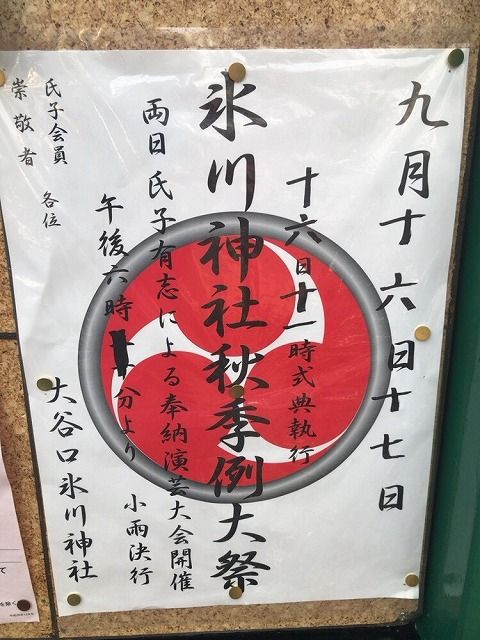 九月十六日十七日
十六日十一時式典執行
氷川神社秋季例大祭
両日氏子有志による奉納演芸大会開催
小雨決行
午後六時 分より
大谷口氷川神社
氏子会員
崇敬者
各位